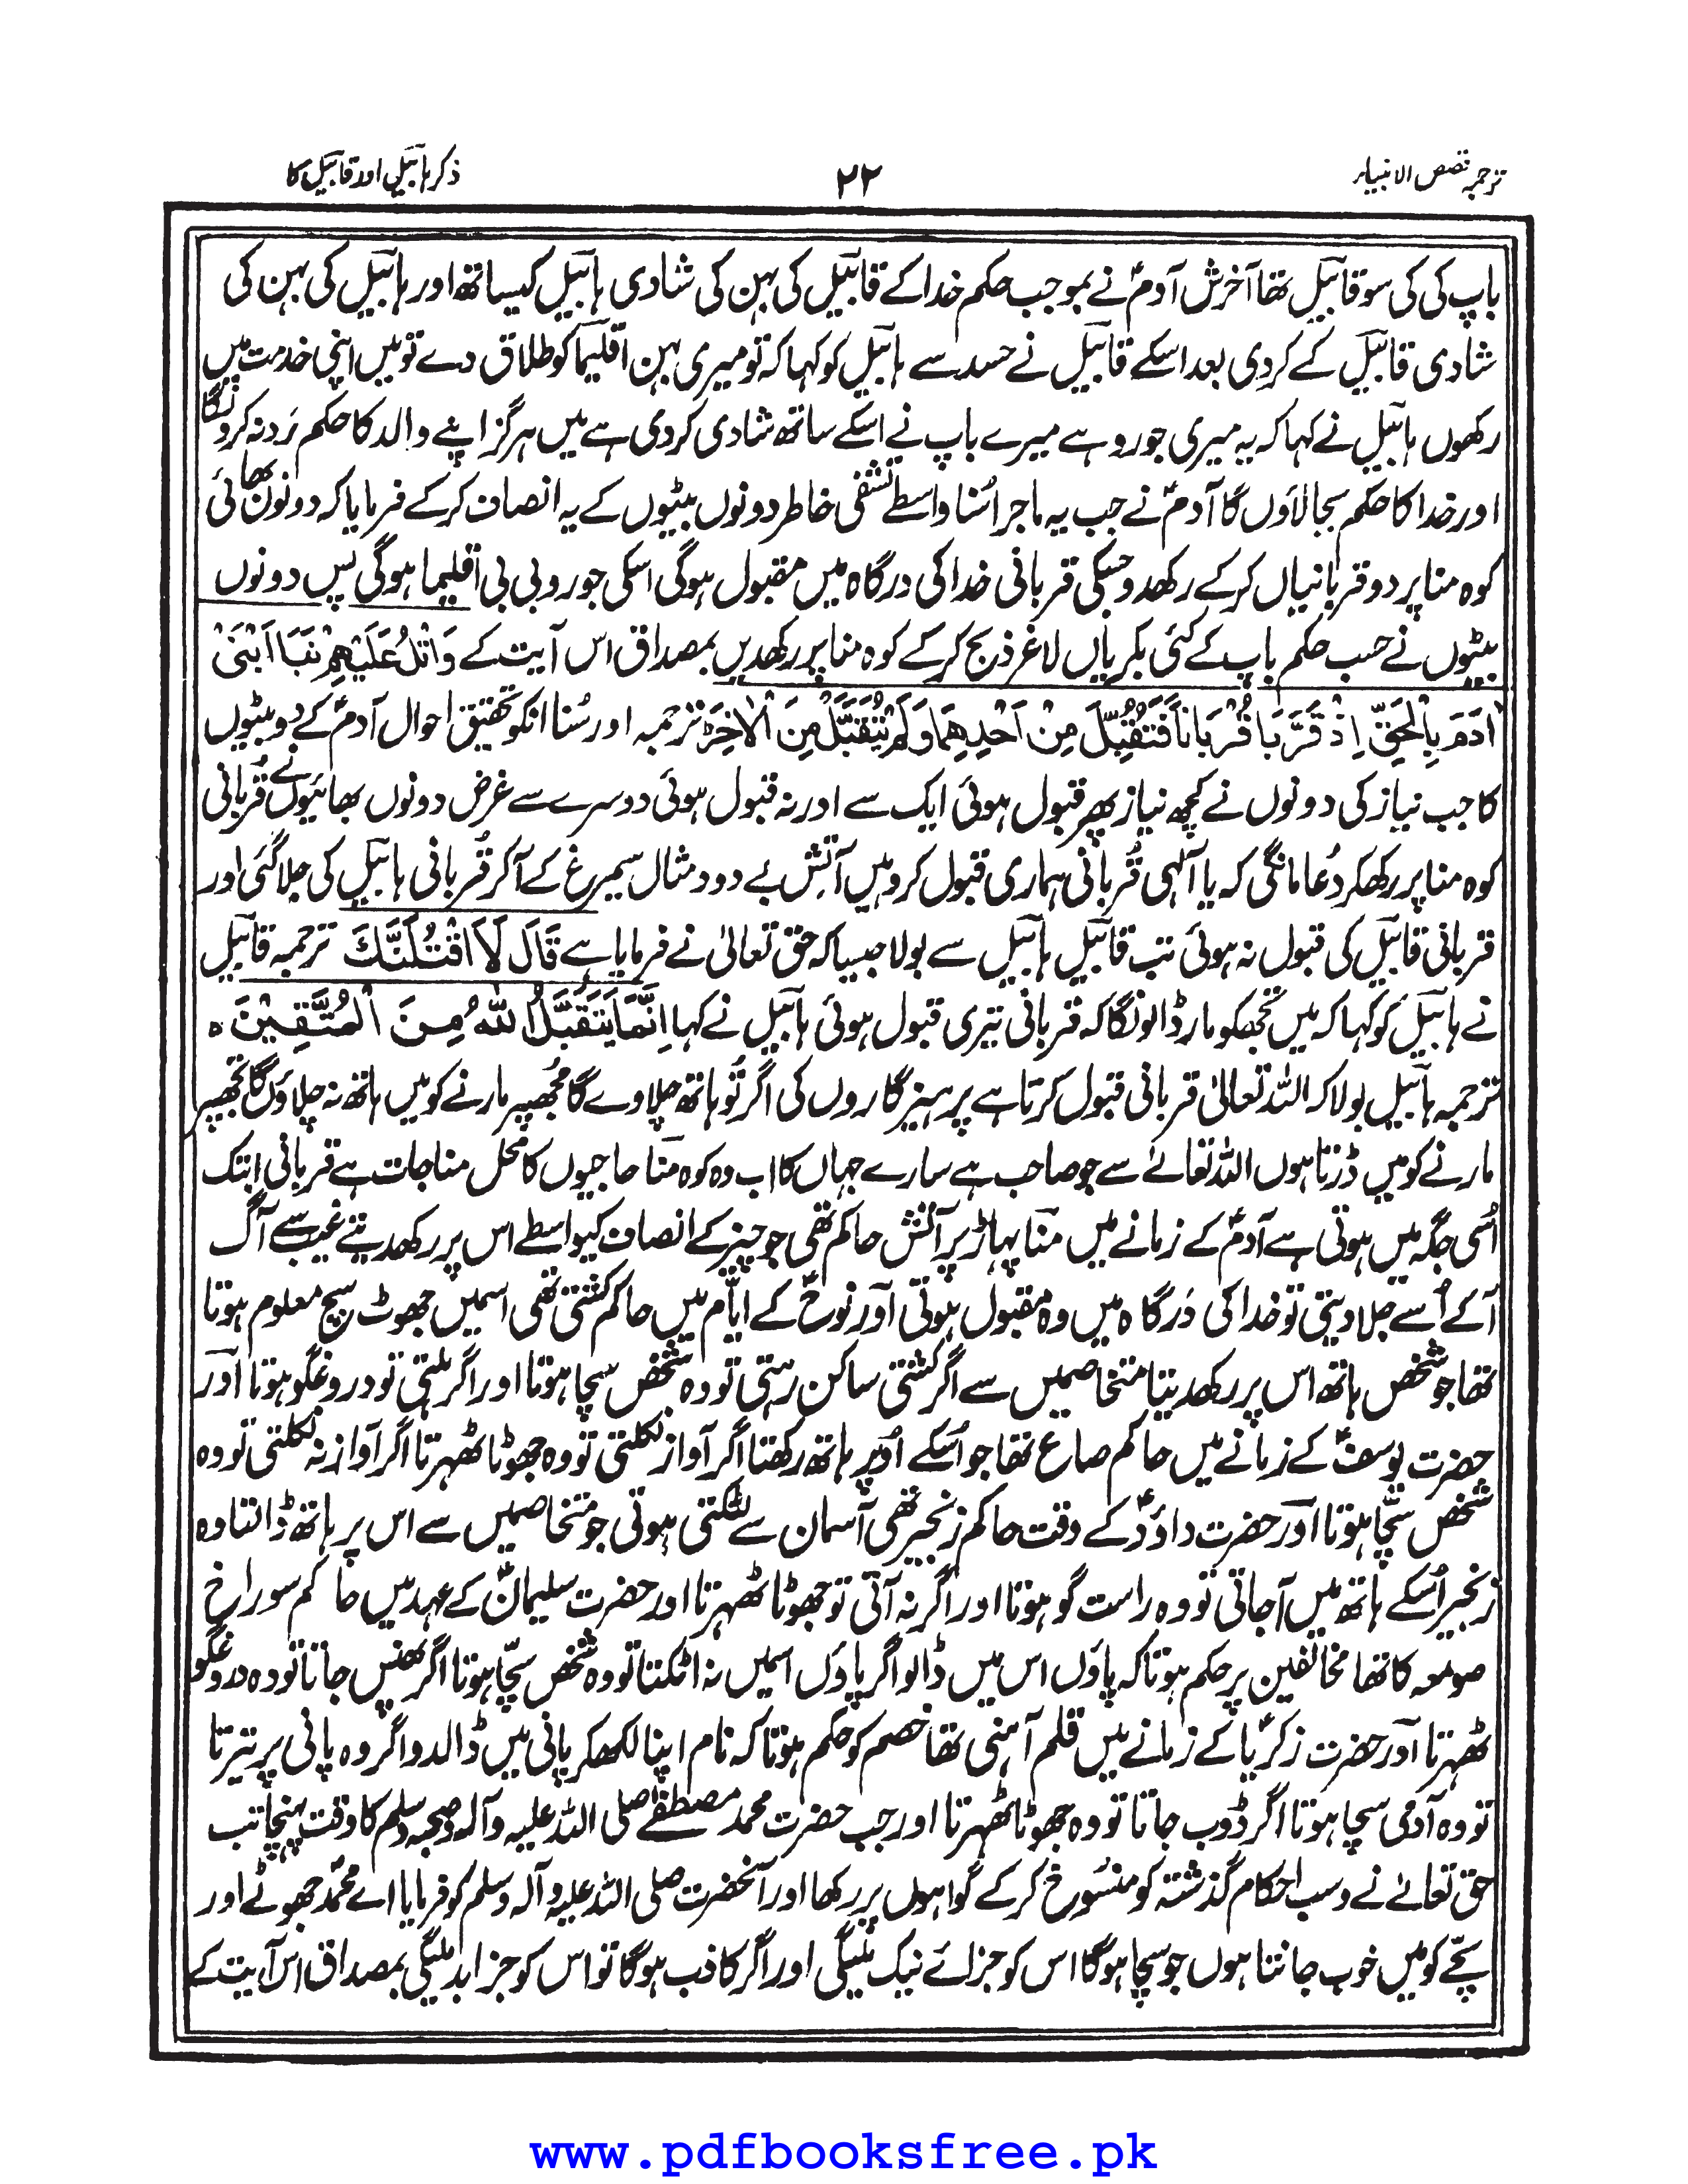 ترجمہ قصص الانبیاء
۲۲
ذکر ہابیل اور قابیل کا
باپ کی کی سو قابیل تھا آخرش آدمؑ نے بموجب حکم خدا کے قابیل کی بہن کی شادی ہابیل کیساتھ اور ہابیل کی بہن کی
شادی قابیل کے کردی بعد اسکے قابیل نے حسد سے ہابیل کو کہا کہ تو میری بہن اقلیما کو طلاق دے تو میں اپنی خدمت میں
رکھوں ہابیل نے کہا کہ یہ میری جورو ہے میرے باپ نے اسکے ساتھ شادی کردی ہے میں ہرگز اپنے والد کا حکم رَد نہ کرونگا
اور خدا کا حکم بجالاؤں گا آدمؑ نے جب یہ ماجرا سُنا واسطے تشفی خاطر دونوں بیٹوں کے یہ انصاف کرکے فرمایا کہ دونوں بھائی
کوہ منا پر دو قربانیاں کرکے رکھدو جسکی قربانی خدا کی درگاہ میں مقبول ہوگی اسکی جورو بی بی اقلیما ہوگی پس دونوں
بیٹوں نے حسب حکم باپ کے کئی بکریاں لاغر ذبح کرکے کوہ منا پر رکھدیں بمصداق اس آیت کے وَاتْلُ عَلَیْهِمْ نَبَاَ ابْنَیْ
اٰدَمَ بِالْحَقِّ اِذْ قَرَّبَا قُرْبَانًا فَتُقُبِّلَ مِنْ اَحَدِهِمَا وَلَمْ یُتَقَبَّلْ مِنَ الْاٰخَرْ ترجمہ اور سُنا انکو تحقیق احوال آدمؑ کے دو بیٹوں
کا جب نیاز کی دونوں نے کچھ نیاز پھر قبول ہوئی ایک سے اور نہ قبول ہوئی دوسرے سے غرض دونوں بھائیوں نے قُربانی
کوہ منا پر رکھکر دُعا مانگی کہ یا آلٰہی قُربانی ہماری قبول کر وہیں آتش بے دود مثال سیمرغ کے آکر قُربانی ہابیل کی جلا گئی اور
قربانی قابیل کی قبول نہ ہوئی تب قابیل ہابیل سے بولا جیسا کہ حق تعالیٰ نے فرمایا ہے قَالَ لَاَ اقْتُلَنَّكَ ترجمہ قابیل
نے ہابیل کو کہا کہ میں تجھکو مار ڈالونگا کہ قربانی تیری قبول ہوئی ہابیل نے کہا اِنَّمَا یَتَقَبَّلُ اللّٰهُ مِنَ الْمُتَّقِیْنَ ہ
ترجمہ ہابیل بولا کہ اللہ تعالیٰ قربانی قبول کرتا ہے پرہیزگاروں کی اگر تُو ہاتھ چلاوے گا مجھپر مارنے کو میں ہاتھ نہ چلاؤں گا تجھپر
مارنے کو میں ڈرتا ہوں اللہ تعالےٰ سے جو صاحب ہے سارے جہاں کا اب وہ کوہ منا حاجیوں کا محل مناجات ہے قربانی ابتک
اُسی جگہ میں ہوتی ہے آدمؑ کے زمانے میں منا پہاڑ پر آتش حاکم تھی جو چیز کے انصاف کیواسطے اس پر رکھدیتے غیب سے آگ
آکے اُسے جلا دیتی تو خدا کی دَرگاہ میں وہ مقبول ہوتی اور نوحؑ کے ایّام میں حاکم کشتی تھی اسمیں جھوٹ سچ معلوم ہوتا
تھا جو شخص ہاتھ اس پر رکھدیتا متخاصمیں سے اگر کشتی ساکن رہتی تو وہ شخص سچا ہوتا اور اگر ہلتی تو دروغگو ہوتا اور
حضرت یوسفؑ کے زمانے میں حاکم صاع تھا جو اُسکے اُوپر ہاتھ رکھتا اگر آواز نکلتی تو وہ جھوٹا ٹھہرتا اگر آواز نہ نکلتی تو وہ
شخص سچّا ہوتا اور حضرت داؤدؑ کے وقت حاکم زنجیر تھی آسمان سے لٹکتی ہوتی جو متخاصمیں سے اس پر ہاتھ ڈالتا وہ
زنجیر اُسکے ہاتھ میں آجاتی تو وہ راست گو ہوتا اور اگر نہ آتی تو جھوٹا ٹھہرتا اور حضرت سلیمانؑ کے عہد میں حاکم سوراخ
صومعہ کا تھا مخالفین پر حکم ہوتا کہ پاؤں اس میں ڈالو اگر پاؤں اسمیں نہ اٹکتا تو وہ شخص سچّا ہوتا اگر پھنس جاتا تو وہ دروغگو
ٹھہرتا اور حضرت زکریاؑ کے زمانے میں قلم آہنی تھا خصم کو حکم ہوتا کہ نام اپنا لکھکر پانی میں ڈالدو اگر وہ پانی پر تیرتا
تو وہ آدمی سچا ہوتا اگر ڈوب جاتا تو وہ جھوٹا ٹھہرتا اور جب حضرت محمد مصطفےٰ صلی اللہ علیہ وآلہ وصحبہ وسلم کا وقت پہنچا تب
حق تعالےٰ نے وسب احکام گذشتہ کو منسُوخ کرکے گواہوں پر رکھا اور آنحضرت صلی اللہ علیہ وآلہ وسلم کو فرمایا اے محمدؐ جھوٹے اور
سچّے کو میں خوب جانتا ہوں جو سچا ہوگا اس کو جزائے نیک ملیگی اور اگر کاذب ہوگا تو اس کو جزا بد ملیگی بمصداق اس آیت کے
www.pdfbooksfree.pk